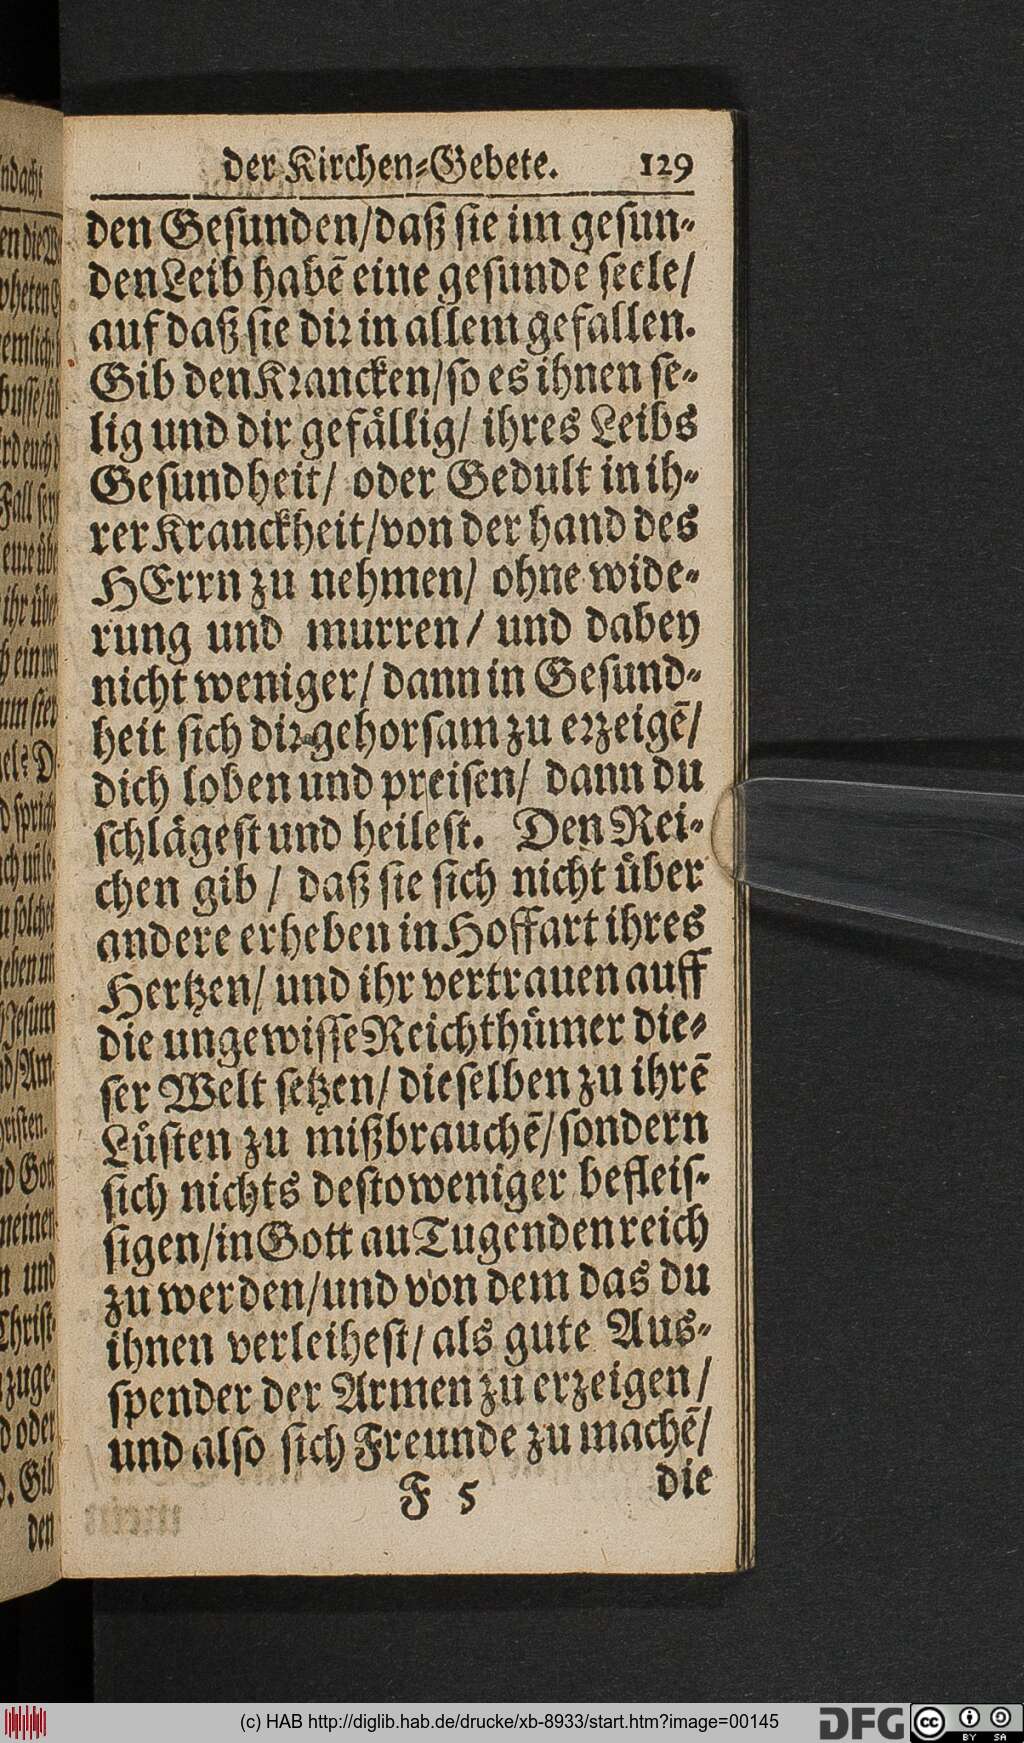 der Kirchen-Gebete. 129
den Gesunden/daß sie im gesun-
den Leib habē eine gesunde seele/
auf daß sie dir in allem gefallen.
Gib den Krancken/so es ihnen se-
lig und dir gefällig/ ihres Leibs
Gesundheit/ oder Gedult in ih-
rer Kranckheit/von der hand des
HErrn zu nehmen/ ohne wide-
rung und murren/ und dabey
nicht weniger/ dann in Gesund-
heit sich dir gehorsam zu erzeigē/
dich loben und preisen/ dann du
schlägest und heilest. Den Rei-
chen gib / daß sie sich nicht über
andere erheben in Hoffart ihres
Hertzen/ und ihr vertrauen auff
die ungewisse Reichthümer die-
ser Welt setzen/ dieselben zu ihrē
Lüsten zu mißbrauchē/sondern
sich nichts destoweniger befleis-
sigen/in Gott au Tugenden reich
zu werden/und von dem das du
ihnen verleihest/ als gute Aus-
spender der Armen zu erzeigen/
und also sich Freunde zu machē/
F 5 die
(c) HAB http://diglib.hab.de/drucke/xb-8933/start.htm?image=00145
DFG cc BY SA